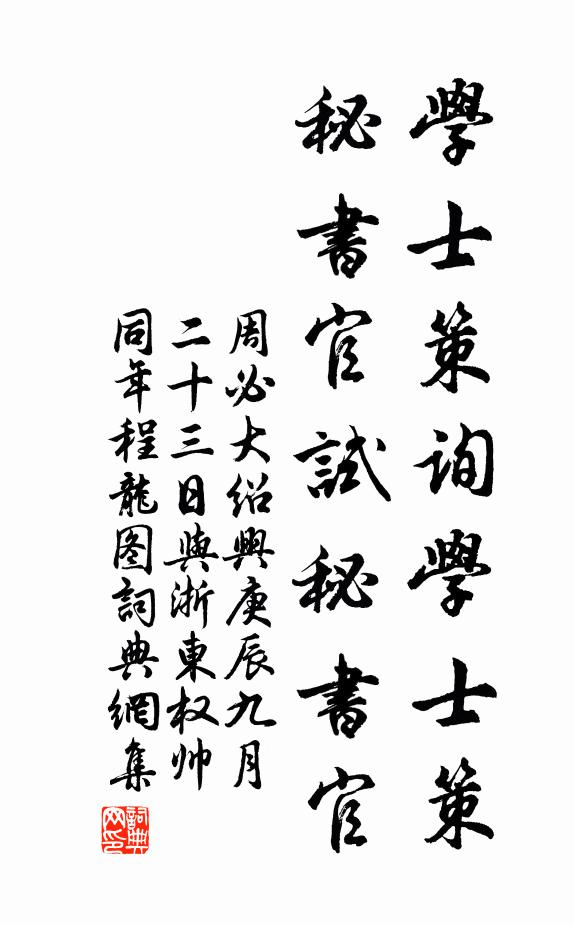 學士策询學士策
秘書官試秘書官
周必大绍興庚辰九月
二十三日與浙東权帅
同年程龍图詞典網集
詞典
网印